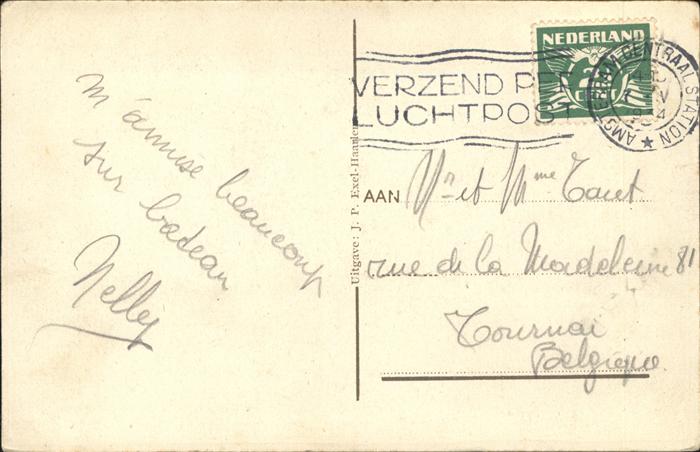 m'amuse beaucoup
sur badeau
Nelly
Uitgave: J. P. Exel-Haarlem
NEDERLAND
VERZEND PER
LUCHTPOST
AMSTERDAM CENTRAAL STATION
AAN Mr et Mme Taret
rue de la Madeleine 81
Tournai
Belgique